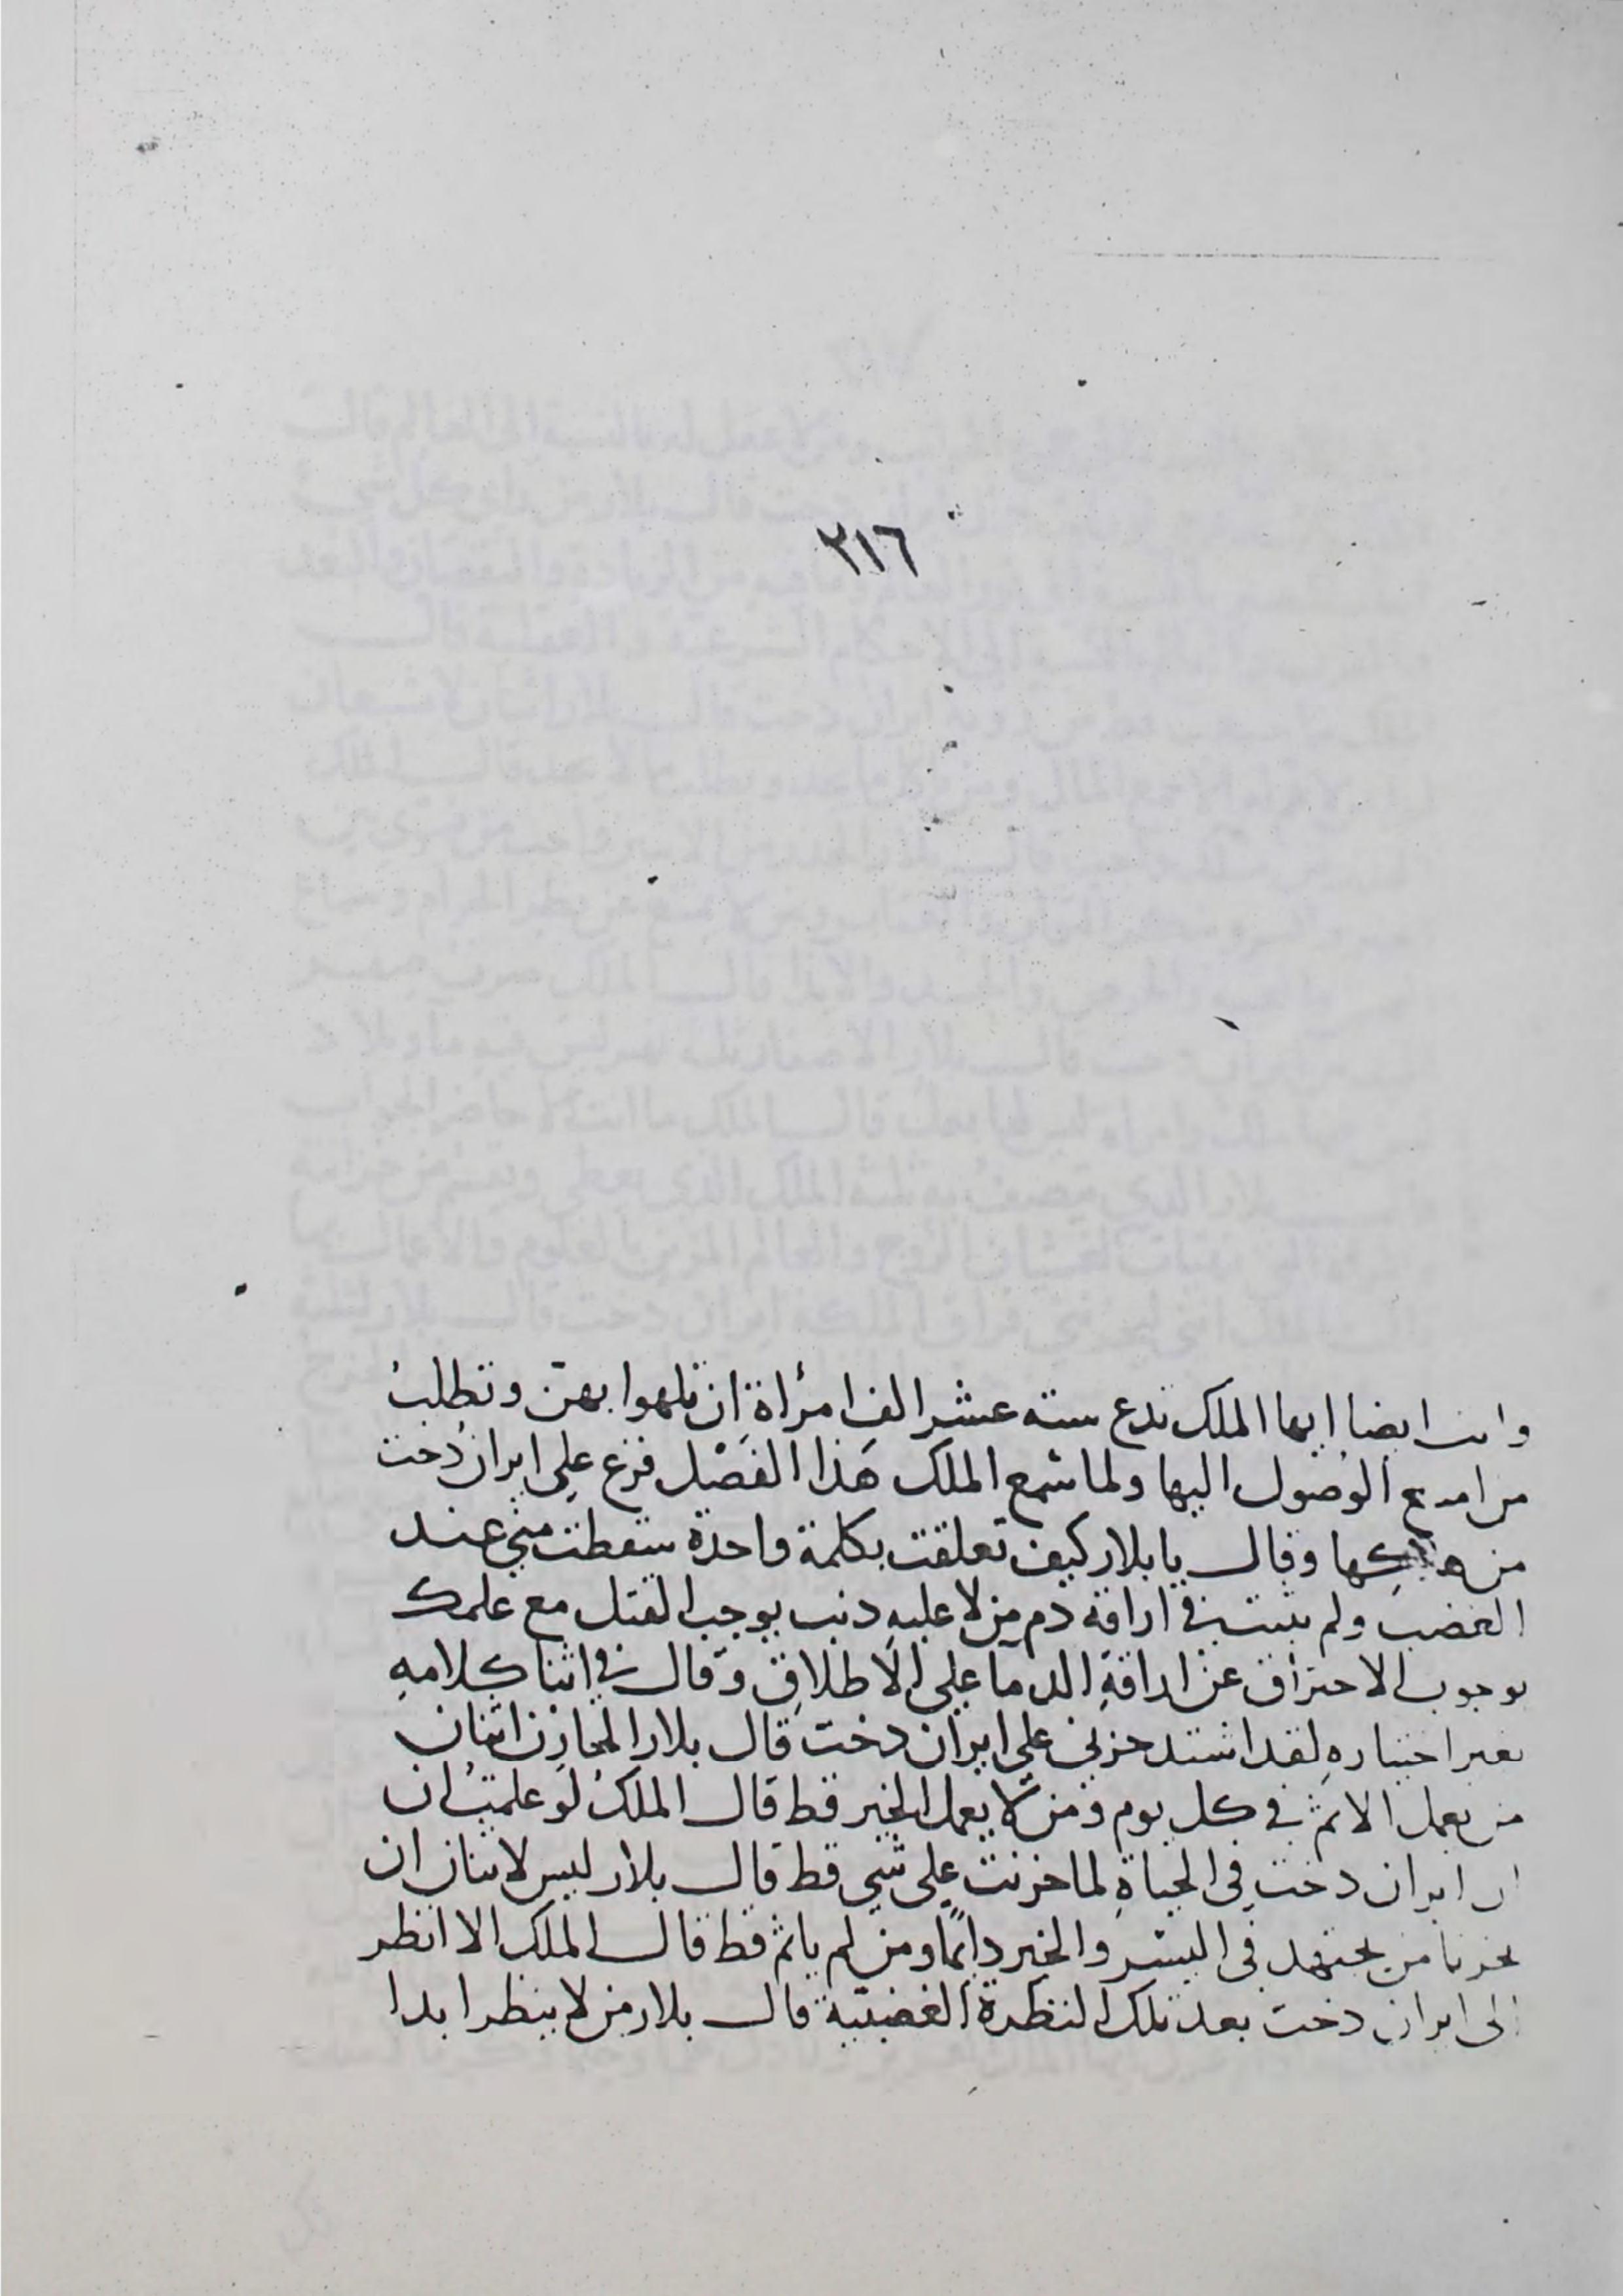 ٣١٦
وانت ايضا ايها الملك تدع ستة عشر الف امرأة ان تلهوا بهن وتطلب
من الوصول اليها ولما سمع الملك هذا الفصل فزع على ايران دخت
من وقال يا بلار كيف تعلقت بكلمة واحدة سقطت مني عند
الغضب ولم تثبت في اراقة دم من لا عليه ذنب يوجب القتل مع علمك
بوجوب الاحتراق عن اراقة الدما على الاطلاق وقال في اثنا كلامه
بغير اختياره لقد اشتد حزني على ايران دخت قال بلار المحازن اثنان
من يعمل الاثم في كل يوم ومن لا يعمل الخير قط قال الملك لو علمت ان
ان ايران دخت في الحياة لما حزنت على شي قط قال بلار ليس لاثنان ان
يحزنا من يجتهد في البشر والخير دائمًا ومن لم ياثم قط قال الملك الا انظر
الى ايران دخت بعد تلك النظرة الغضبية قال بلار من لا ينظر ابدا